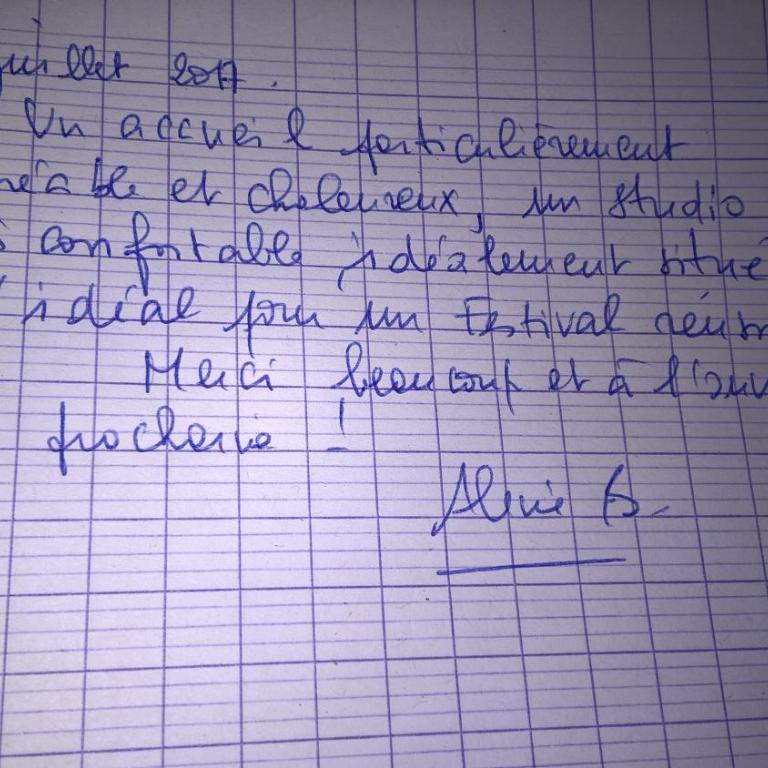 juillet 2017.
Un accueil particulièrement
et chaleureux, un studio
confortable idéalement situé
idéal pour un Festival
Merci beaucoup et à l'
prochaine !